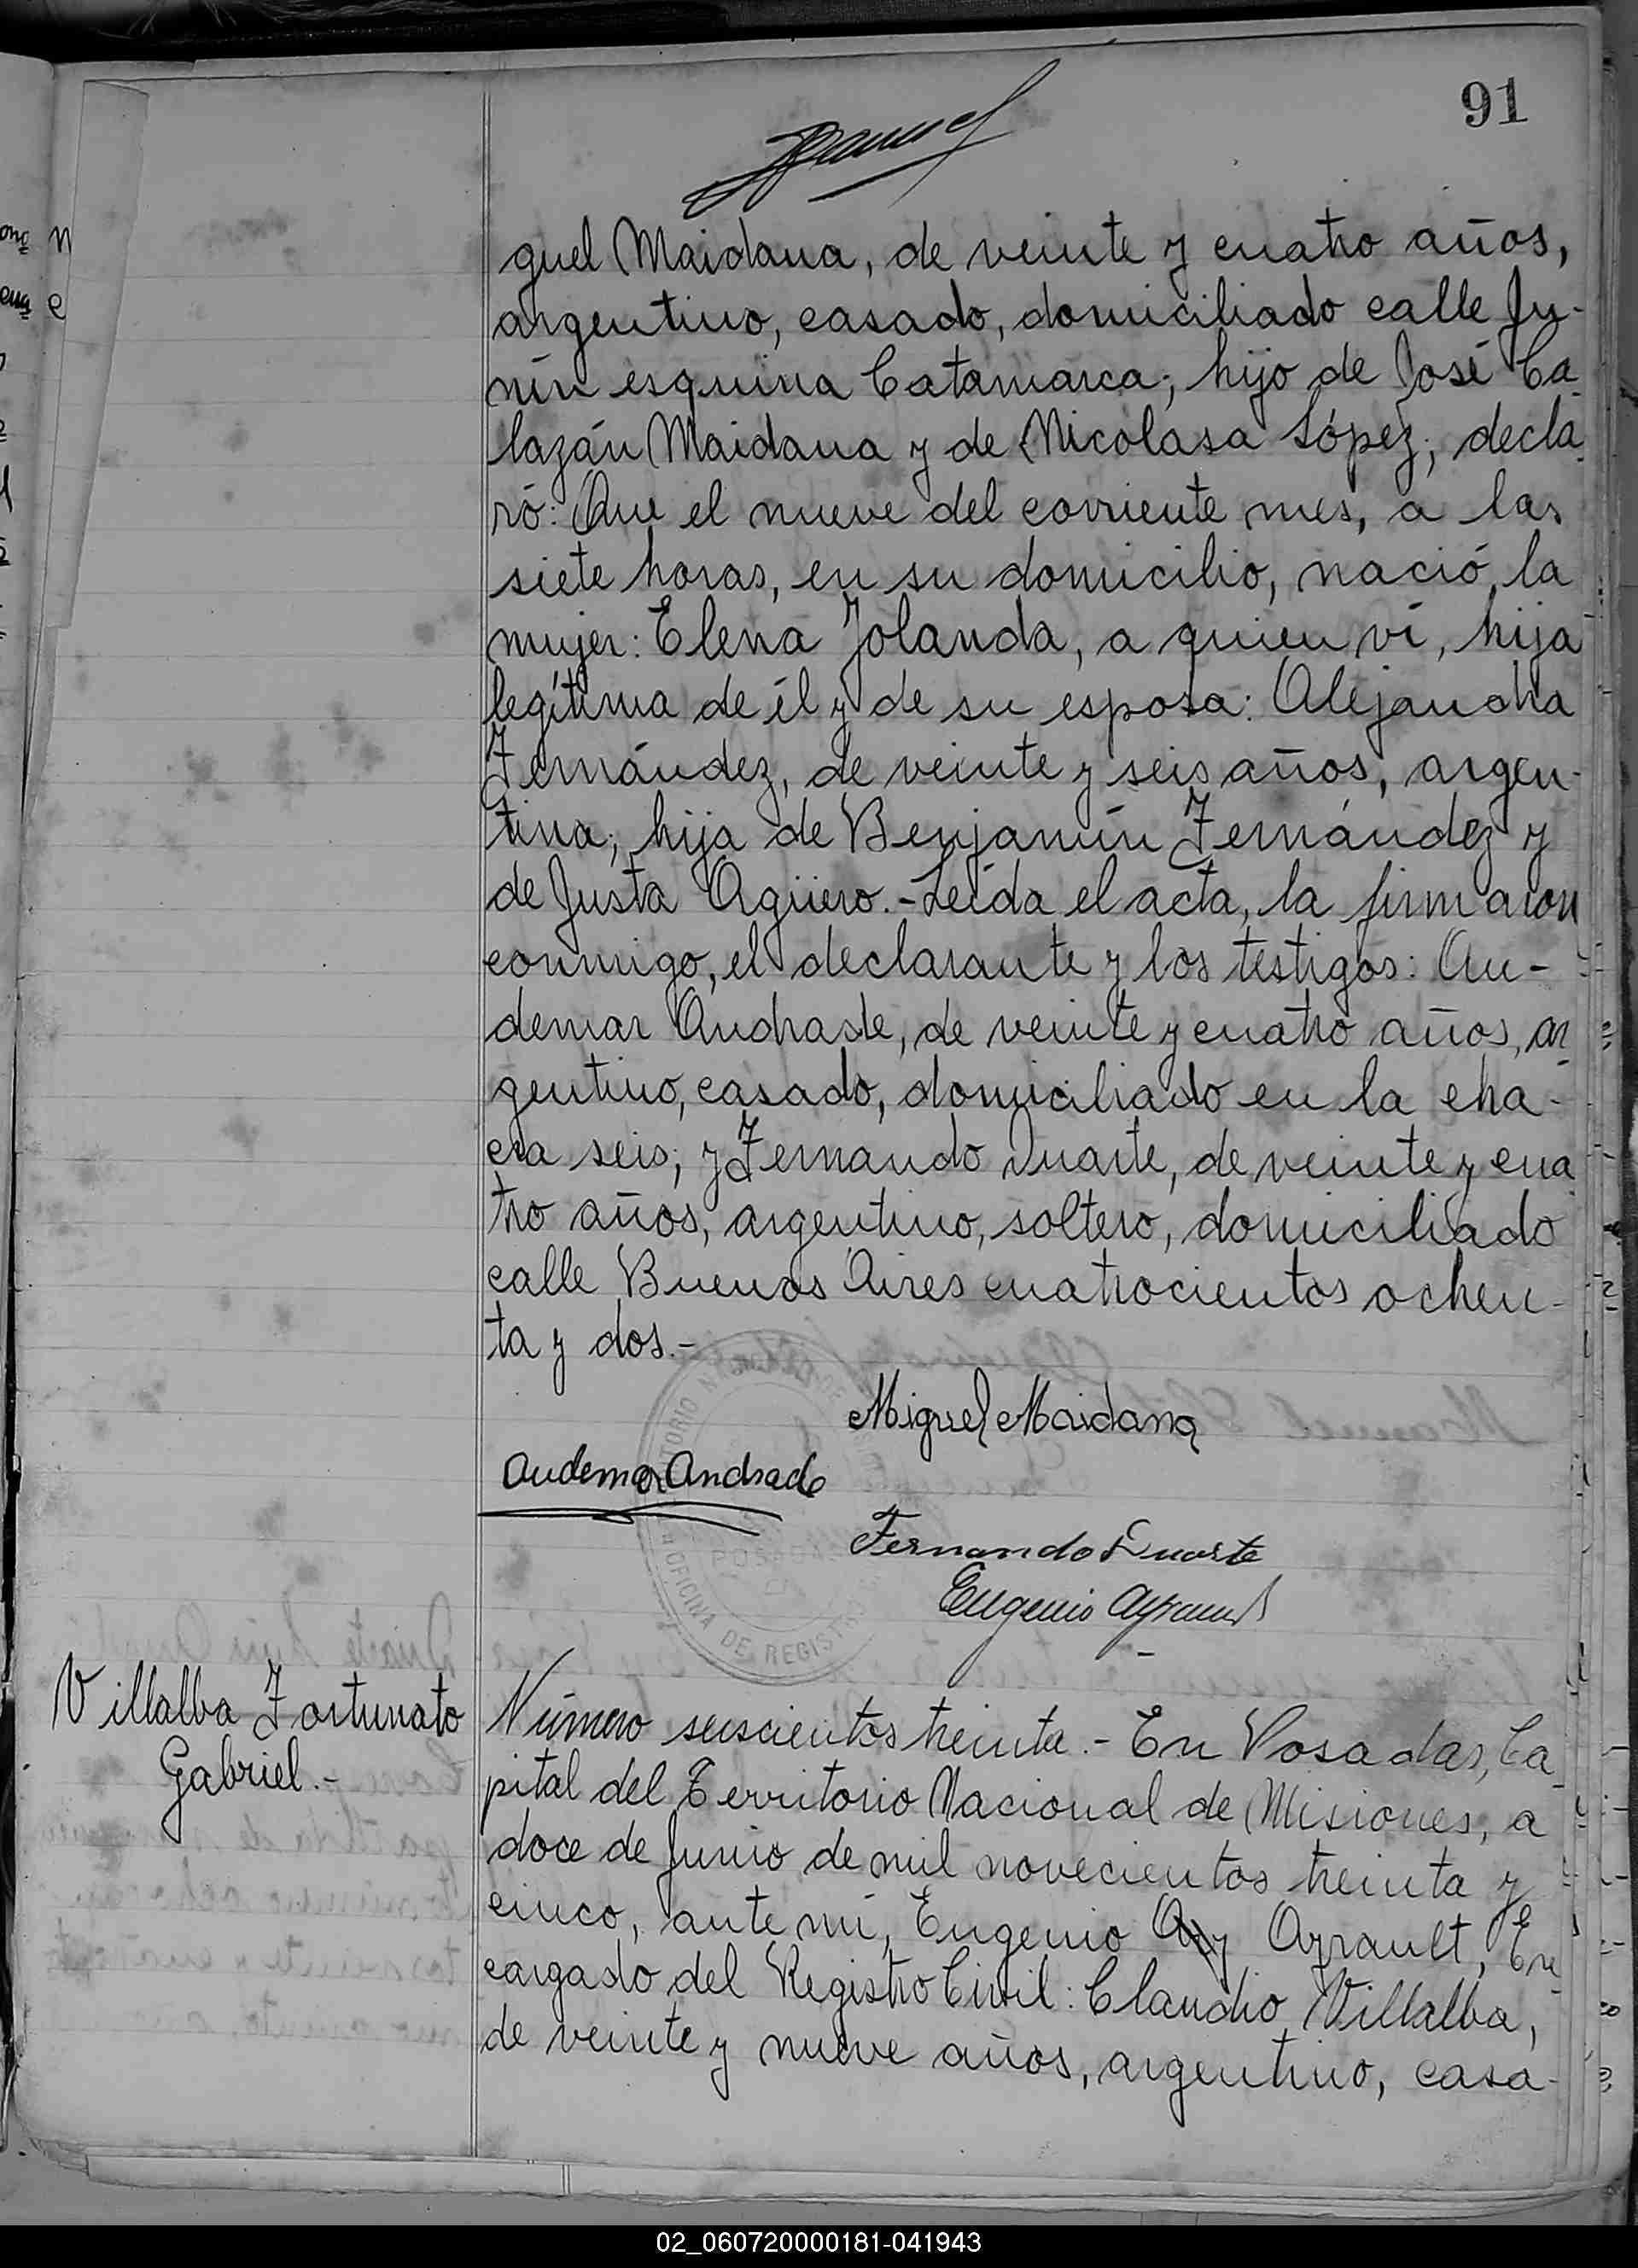 91
guel Maidana, de veinte y cuatro años,
argentino, casado, domiciliado calle Ju-
nín esquina Catamarca; hijo de José Ca-
lazán Maidana y de Nicolasa López; decla-
ró: Que el nueve del corriente mes, a las
siete horas, en su domicilio, nació la
mujer: Elena Jolanda, a quien ví, hija
legítima de él y de su esposa: Alejandra
Fernández, de veinte y seis años, argen-
tina; hija de Benjamín Fernández y
de Justa Agüero.- Leída el acta, la firmaron
conmigo, el declarante y los testigos: Au-
demar Andrade, de veinte y cuatro años, ar-
gentino, casado, domiciliado en la cha-
cra seis; y Fernando Duarte, de veinte y cua
tro años, argentino, soltero, domiciliado
calle Buenos Aires cuatrocientos ochen-
ta y dos.-
Miguel Maidana
Audemar Andrade
Fernando Duarte
Eugenio Ayrault
OFICINA DE REGISTRO
POSADAS
Villalba Fortunato
Gabriel.-
Número seiscientos treinta.- En Posadas, Ca-
pital del Territorio Nacional de Misiones, a
doce de Junio de mil novecientos treinta y
cinco, ante mí, Eugenio Ayrault, En-
cargado del Registro Civil: Claudio Villalba,
de veinte y nueve años, argentino, casa-
02_060720000181-041943